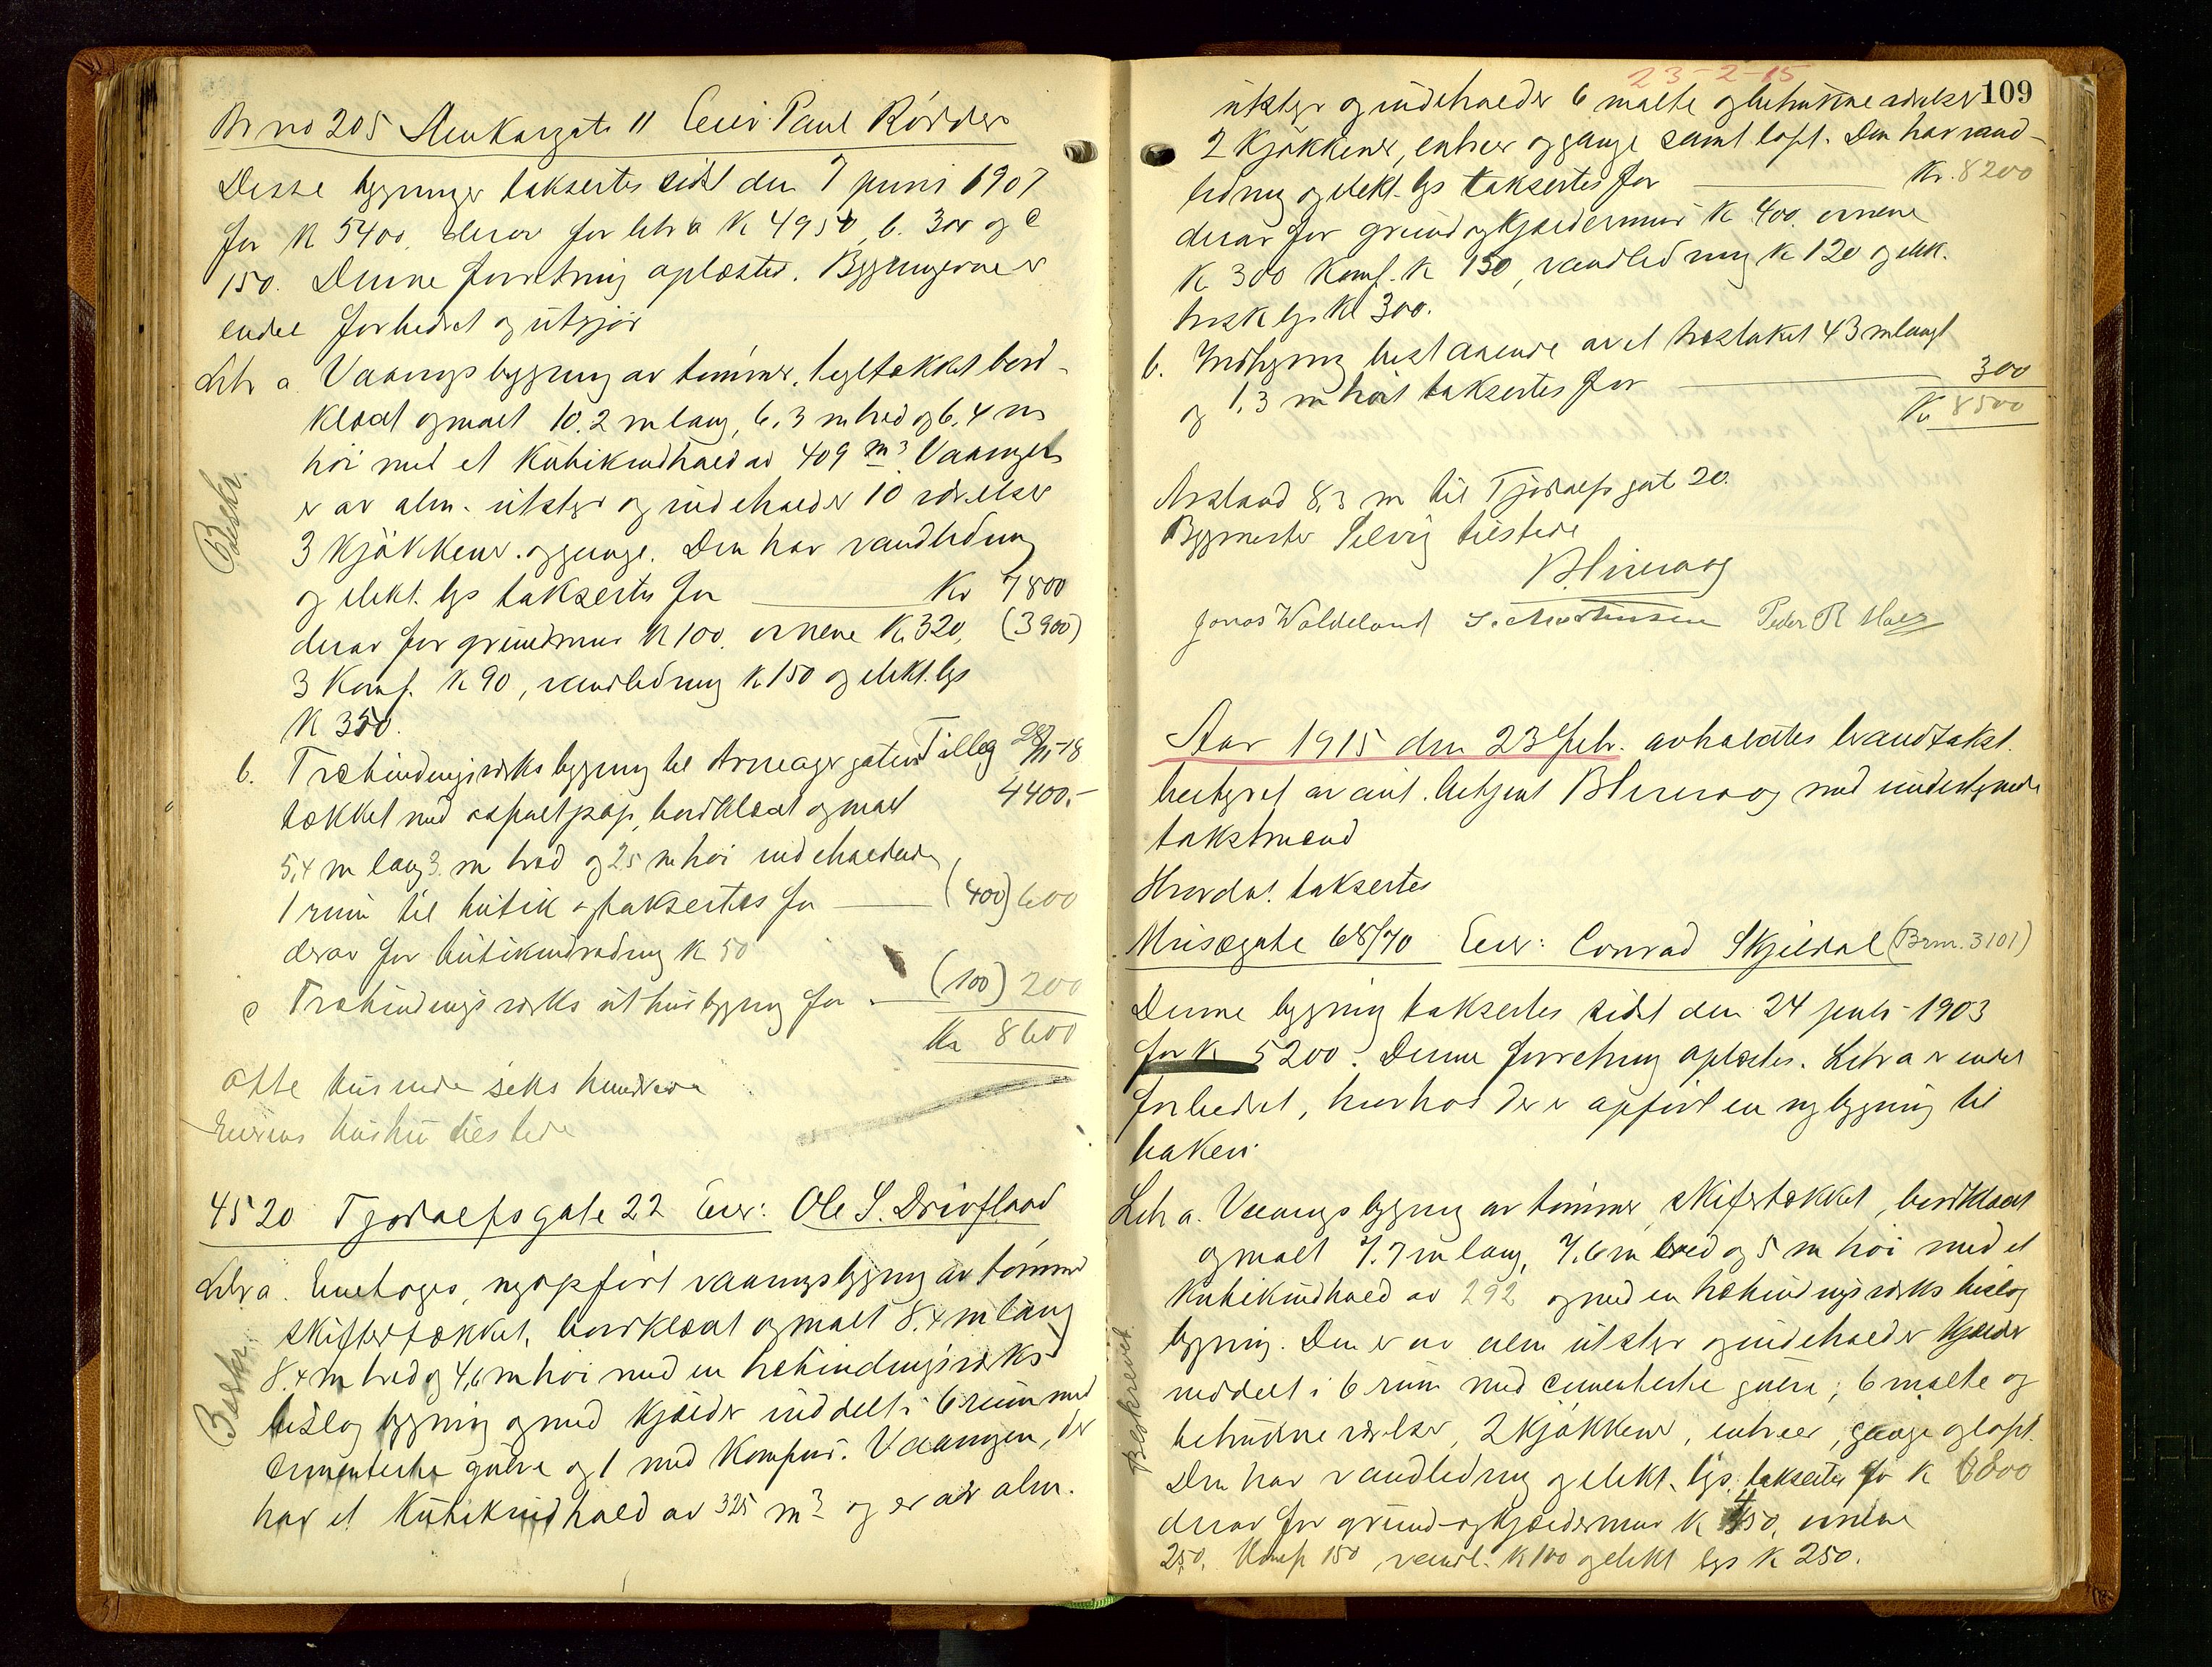 Br no 205 Stenkargate 11 Eier: Paul Rödder
Disse bygninger taksertes sidst den 7 juni 1907
for K 5400, derav for litr a K 4950, b. 300 og c
150. Denne forretning oplæstes. Bygningerne er
endel forbedret og utgjør
Litr a Vaaningsbygning av tømmer, tegltækket bord-
klædt og malt 10.2 m lang, 6,3 m bred og 6,4 m
høi med et kubikindhold av 409 m³. Vaaningen
er av alm. utstyr og indeholder 10 værelser
3 kjøkkener og gange. Den har vandledning
og elekt. lys taksertes for Kr 7800
derav for grundmur K 100. ovnene K 320, (3900)
3 Komf. K 90, vandledning K 150 og elekt. lys
K 350.
Beskr.
b. Træbindingsverks bygning til Armeagergaten Tillæg 28/11-18
tækket med asfaltpap, bordklædt og malt 4400,-
5,4 m lang 3 m bred og 2,5 m høi indeholdende
1 rum til butik og taksertes for (400) 600
derav for butikindredning K 50
c Træbindingsverks uthusbygning for (100) 200
Kr 8600
Otte tusinde seks hundrede
Eierens hustru tilstede
4520 Tjodolfsgate 22 Eier: Ole S. Driofland
Litr a. Enetages, nyopført vaaningsbygning av tømmer
skiffertækket, bordklædt og malt 8.4 m lang
8,4 m bred og 4,6 m høi med en træbindingsverks
bislagbygning og med kjælder inddelt i 6 rum med
cementerte gulve og 1 med komfur. Vaaningen, der
har et kubikindhold av 325 m³ og er av alm.
Beskr.
23-2-15
109
utstyr og indeholder 6 malte og betrukne værelser
2 kjøkkener, entreer og gange samt loft. Den har vand-
ledning og elekt. lys taksertes for Kr. 8200
derav for grund og kjældermur K 400. ovnene
K 300 Komf. K 150, vandledning K 120 og elek-
trisk lys K 300.
b. Indhegning bestaaende av et træstaket 43 m langt
og 1,3 m høit taksertes for 300
Kr 8500
Avstand 8,3 m til Tjodolfsgate 20.
Bygmester Selvig tilstede
Jonas Waldeland S. Mortensen Peder R
Aar 1915 den 23 Febr. avholdtes brandtakst
bestyret av aut. betjent med undertegnede
takstmænd
Hvorda! taksertes
Musegate 68/70 Eier: Conrad Skjeldal (Brnr. 3101)
Denne bygning taksertes sidst den 24 juli 1903
for K 5200. Denne forretning oplæstes. Litra er endel
forbedret, hvorhos der er opført en ny bygning til
bakeri
Litr a. Vaaningsbygning av tømmer, skifertækket, bordklædt
og malt 7.7 m lang, 7.6 m bred og 5 m høi med et
kubikindhold av 292 og med en træbindingsverks bislag
bygning. Den er av alm utstyr og indeholder kjælder
inddelt i 6 rum med cementerte gulve, 6 malte og
betrukne værelser, 2 kjøkkener, entreer, gange og loft.
Den har vandledning og elekt. lys taksertes for K 6800
derav for grund- og kjældermur K 450, ovnene
250, Komf 150 vandl. K 100 og elekt lys K 250.
Beskrevet